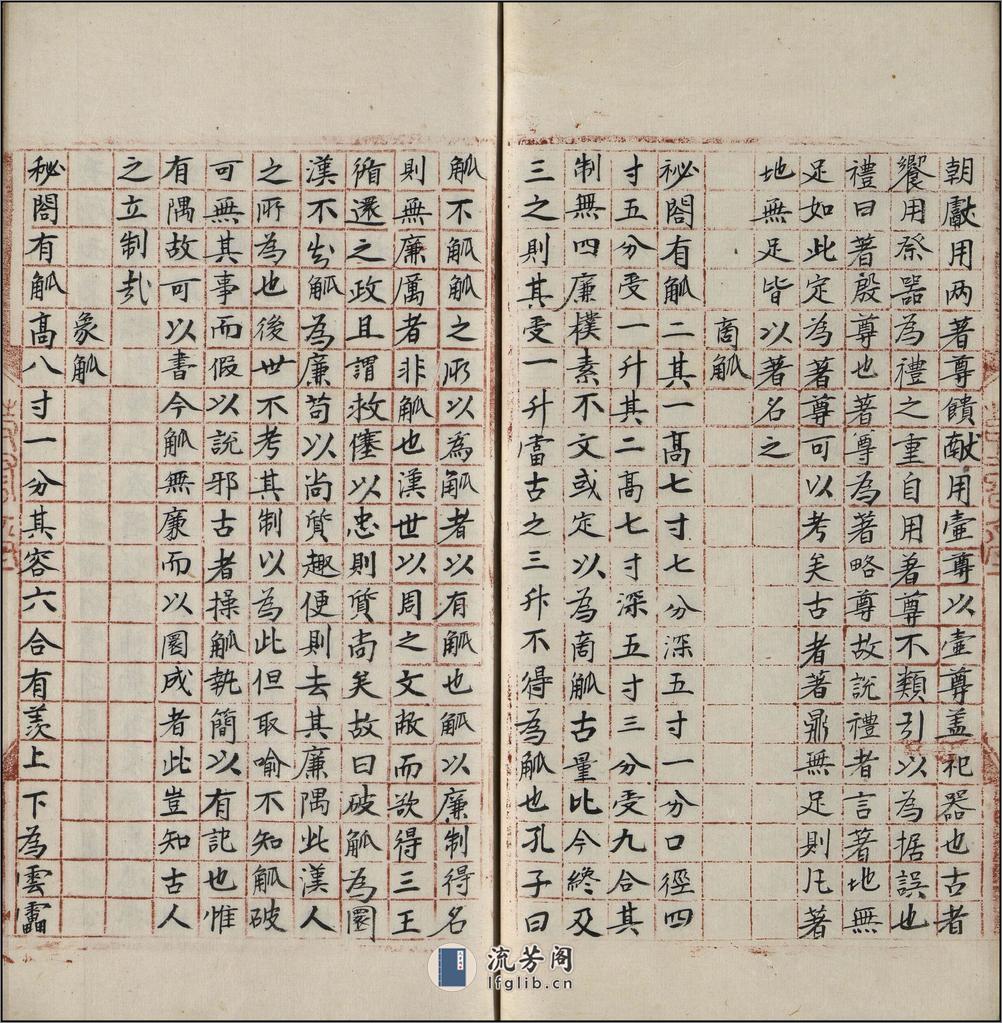 朝獻用两著尊饋献用壷尊以壷尊盖祀器也古者
饗用祭器為禮之重自用著尊不類引以為据誤也
禮曰著殷尊也著尊為著略尊故説禮者言著地無
足如此定為著尊可以考矣古者著鼎無足則凡著
地無足皆以著名之
商觚
祕閤有觚二其一高七寸七分深五寸一分口徑四
寸五分受一升其二高七寸深五寸三分受九合其
制無四廉樸素不文或定以為商觚古量比今終及
三之則其受一升當古之三升不得為觚也孔子曰
觚不觚觚之所以為觚者以有觚也觚以廉制得名
則無廉厲者非觚也漢世以周之文敝而欲得三王
循還之政且謂救僿以忠則質尚矣故曰破觚為圜
漢不出觚為廉苟以尚質趣便則去其廉隅此漢人
之所為也後世不考其制以為此但取喻不知觚破
可無其事而假以說邪古者操觚執簡以有記也惟
有隅故可以書今觚無廉而以圜成者此豈知古人
之立制哉
象觚
秘閤有觚高八寸一分其容六合有羡上下為雲靁
流芳阁
lfglib.cn